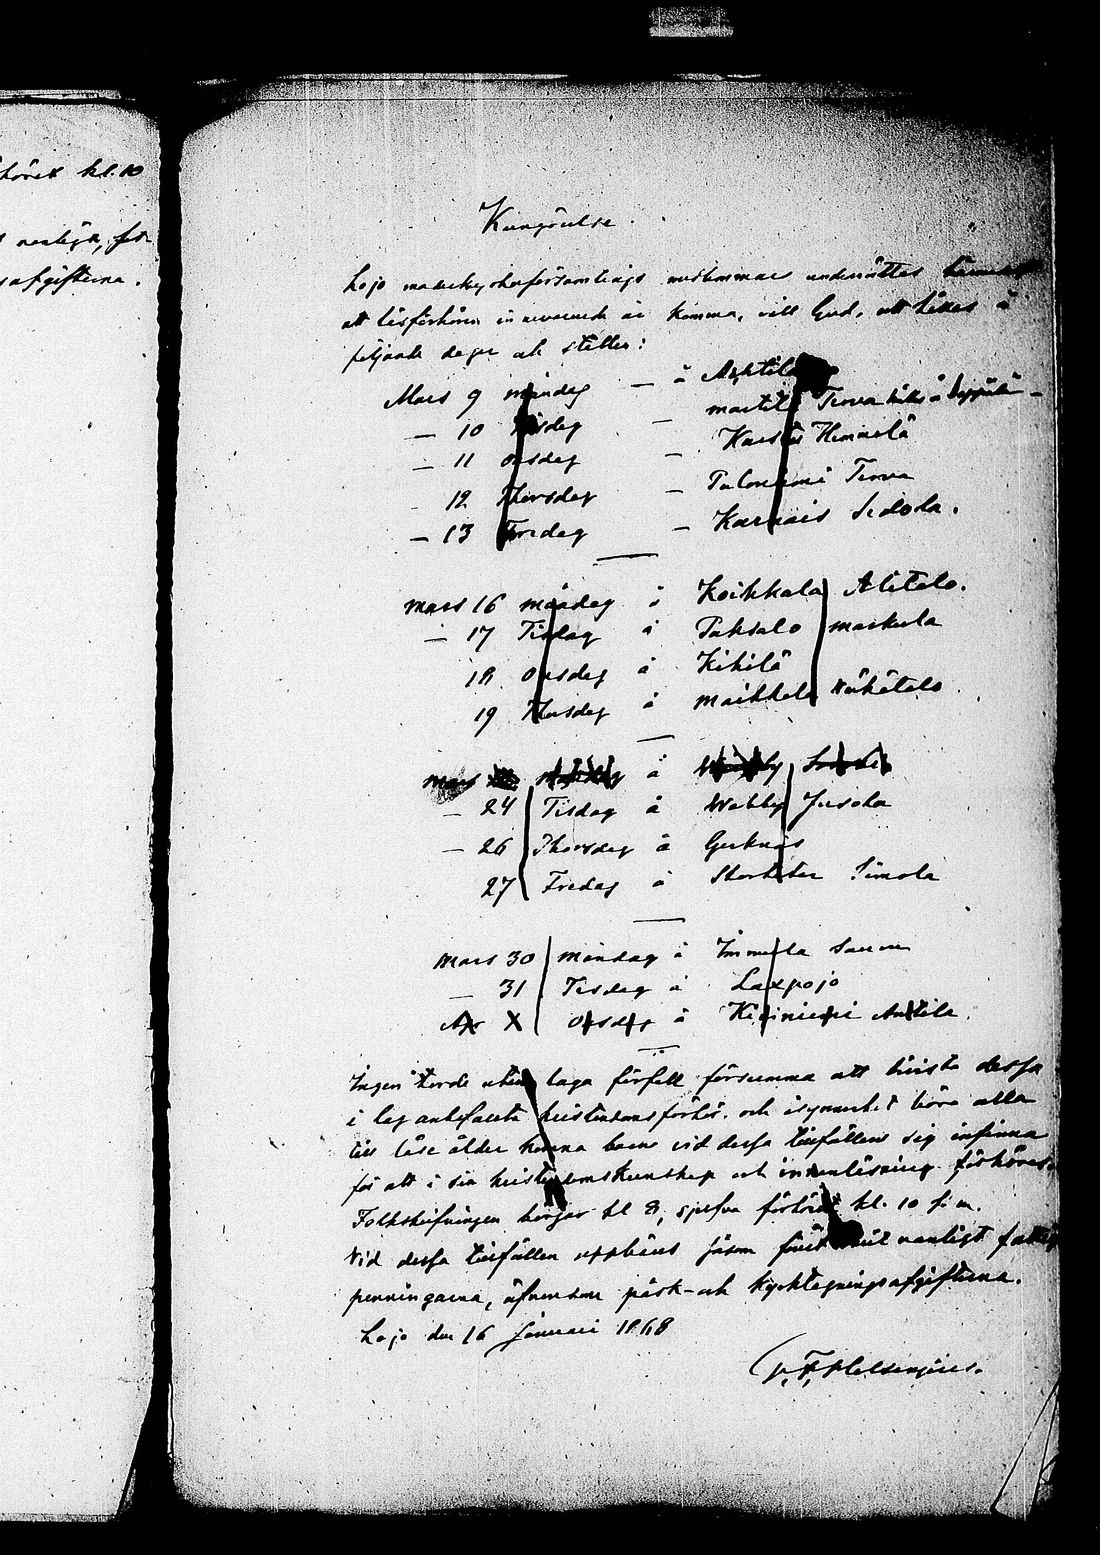 höret kl. 10
vanligt, fat-
safgifterna.
Kungörelse
Lojo moderkyrkoförsamlings medlemmar underrättas härmed
att läsförhören innevarande år komma, vill Gud, att hållas å
följande dagar och ställen:
Mars 9 måndag — å
— 10 Tisdag — Martila Terva
— 11 Onsdag — Karstu Hemmilä
12 Thorsdag — Paloniemi Terva
— 13 Fredag — Karnais Sidola.
Mars 16 måndag å Koikkala Alitalo.
— 17 Tisdag å Paksalo Markula
18 Onsdag å Kihilä
19 Thorsdag å Maikkala Näkätalo
Mars å
— 24 Tisdag å Wabby Jusola
— 26 Thorsdag å Gerknäs
27 Fredag å Simola
Mars 30 måndag å Immola
— 31 Tisdag å Laxpojo
Apr X Onsdag å Kirimiemi Anttila
Ingen torde utan laga förfall försumma att bivista dessa
i lag anbefalta kristendomsförhör, och isynnerhet böra alla
till läse ålder komna barn vid dessa tillfällen sig infinna
för att i sin kristendomskunskap och innanläsning förhöras.
Folkskrifningen börjar kl 8, sjelfva förhöret kl. 10 f.m.
Vid dessa tillfällen uppbäras såsom förut vanligt fattig
penningarna, äfvensom påsk- och kyrktagningsafgifterna.
Lojo den 16 Januari 1868